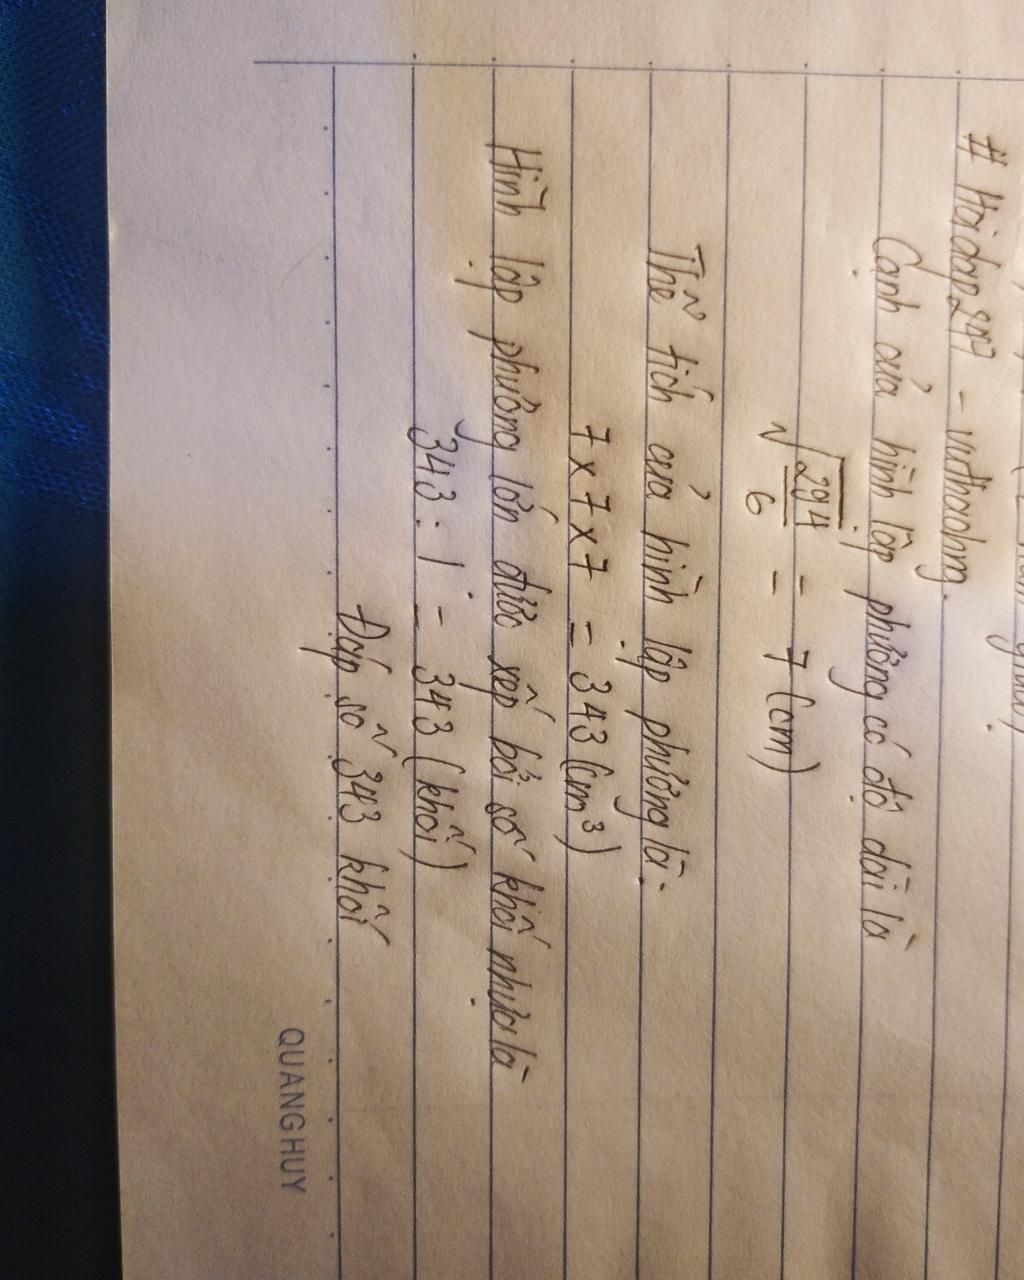 # Hoidap247 - vuthaohg.
Cạnh của hình lập phương có độ dài là
√294/6 = 7 (cm)
Thể tích của hình lập phương là:
7 x 7 x 7 = 343 (cm³)
Hình lập phương lớn được xếp bởi số khối nhựa là
343 : 1 = 343 (khối)
Đáp số 343 khối
QUANG HUY